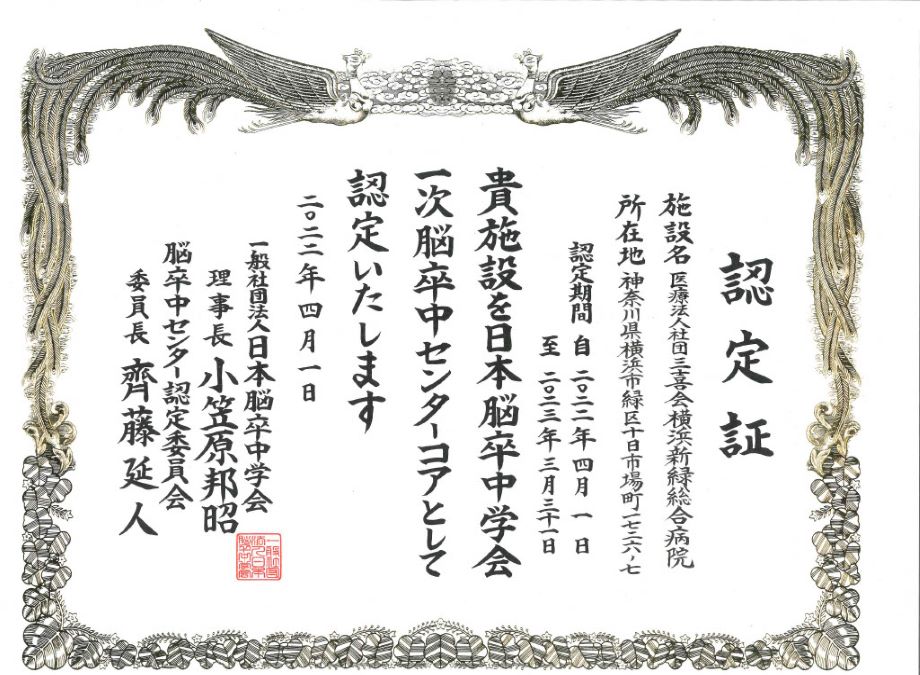 認定証
施設名 医療法人社団三喜会横浜新緑総合病院
所在地 神奈川県横浜市緑区十日市場町一七二六ノ七
認定期間 自 二〇二二年四月一日
至 二〇二三年三月三十一日
貴施設を日本脳卒中学会
一次脳卒中センターコアとして
認定いたします
二〇二二年四月一日
一般社団法人日本脳卒中学会
理事長 小笠原邦昭
脳卒中センター認定委員会
委員長 齊藤延人